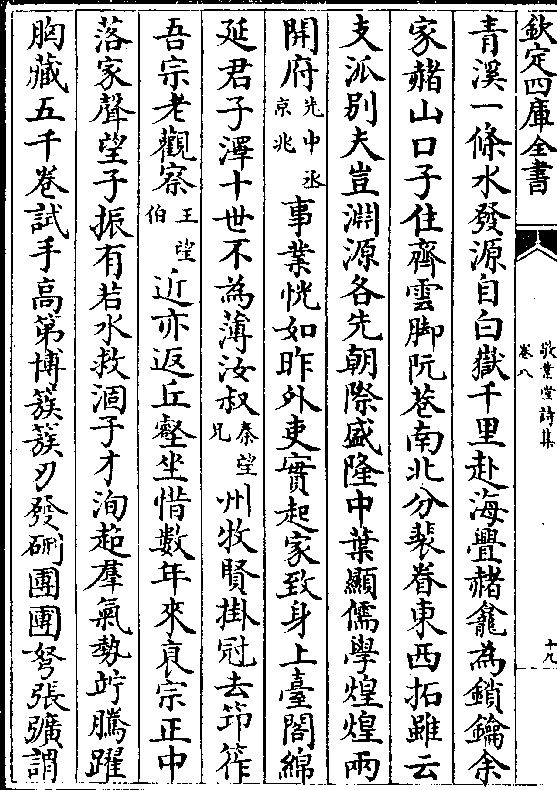 欽定四庫全書
敬業堂詩集
卷八
十九
青溪一條水發源自白嶽千里赴海舋赭龕為鎖鑰余
家赭山口子住齊雲脚阮巷南北分裴眷東西拓雖云
支派别夫豈淵源各先朝際盛隆中葉顯儒學煌煌兩
開府先中丞京兆事業恍如昨外吏實起家致身上臺閣綿
延君子澤十世不為薄汝叔秦望兄州牧賢掛冠去笻筰
吾宗老觀察王望伯近亦返丘壑坐惜數年來衰宗正中
落家聲望子振有若水救涸子才洵超羣氣勢竚騰躍
胸藏五千卷試手高第博簇簇刃發硎團團弩張彍謂